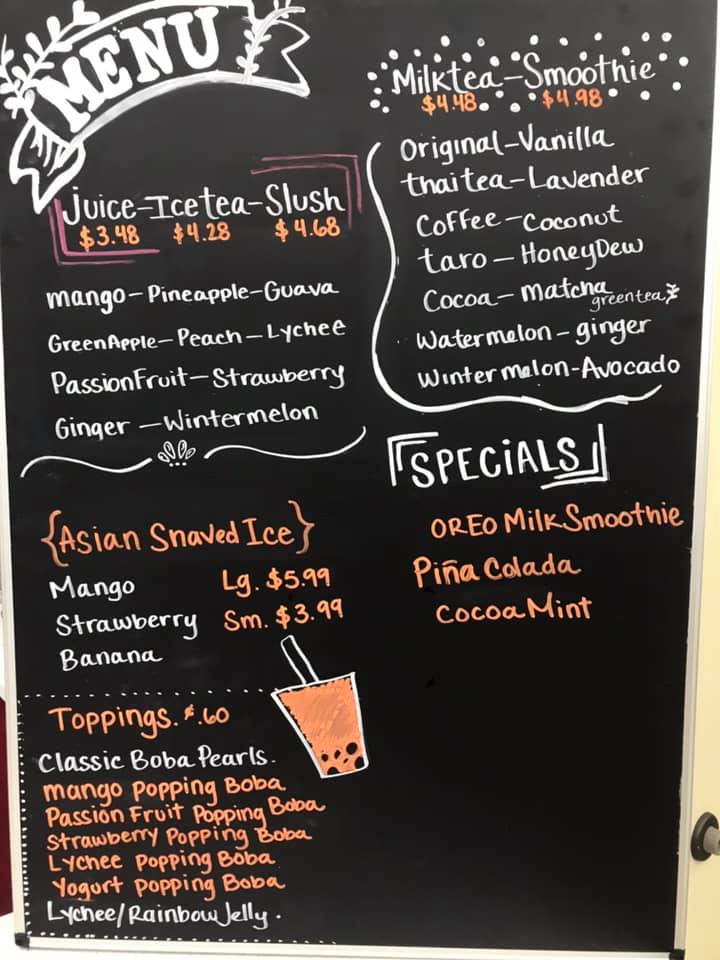 MENU
Juice-Icetea-Slush
$3.48 $4.28 $4.68
mango-Pineapple-Guava
GreenApple-Peach-Lychee
PassionFruit-Strawberry
Ginger-Wintermelon
Milktea-Smoothie
$4.48 $4.98
Original-Vanilla
thaitea-Lavender
Coffee-Coconut
taro-HoneyDew
Cocoa-matcha
greentea
Watermelon-ginger
Wintermelon-Avocado
SPECiALS
OREO MilkSmoothie
Piña Colada
CocoaMint
{Asian Shaved Ice}
Mango Lg. $5.99
Strawberry Sm. $3.99
Banana
Toppings. $.60
Classic Boba Pearls.
mango popping Boba
Passion Fruit Popping Boba
Strawberry Popping Boba
Lychee popping Boba
Yogurt popping Boba
Lychee/RainbowJelly.